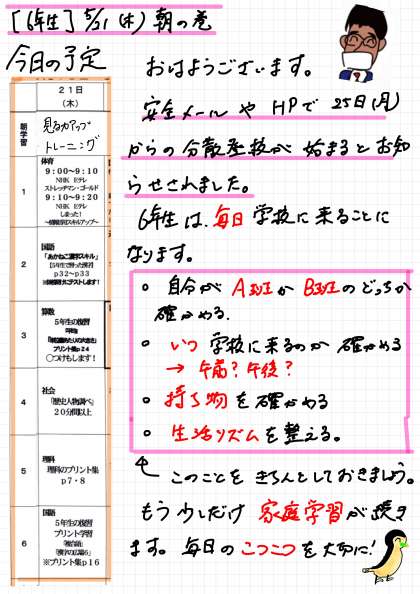 [6年生] 5/21(木) 朝の巻
今日の予定
21日
(木)
朝学習
見る力アップ
トレーニング
1
体育
9:00〜9:10
NHK Eテレ
ストレッチマン・ゴールド
9:10〜9:20
NHK Eテレ
しまった!
〜情報活用スキルアップ〜
2
国語
「あかねこ漢字スキル」
【5年生で習った漢字】
p32〜p33
3
算数
5年生の復習
プリント集p24
〇つけもします!
4
社会
「歴史人物調べ」
20分間以上
5
理科
理科のプリント集
p7・8
6
国語
5年生の復習
プリント学習
「敬語」
「漢字の広場⑤」
※プリント集p16
おはようございます。
安全メールや HPで 25日(月)
からの分散登校が 始まるとお知
らせされました。
6年生は、毎日 学校に来ることに
なります。
○ 自分が A班か B班の どっちか
確かめる。
○ いつ 学校に来るのか 確かめる
→ 午前? 午後?
○ 持ち物を確かめる
○ 生活リズムを整える。
このことを きちんとしておきましょう。
もう少しだけ 家庭学習が続き
ます。毎日の こつこつを大切に!